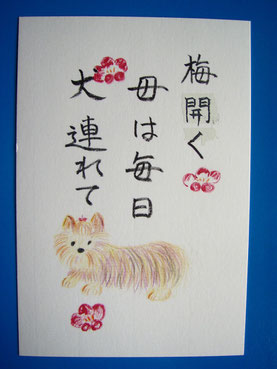 梅開く
母は毎日
犬連れて